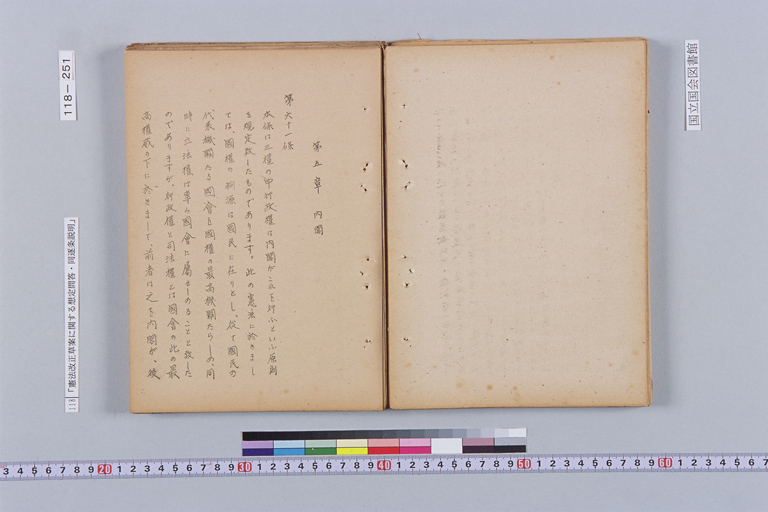 国立国会図書館
118-251
118「憲法改正草案に関する想定問答・同逐条説明」
第五章 内閣
第六十一條
本條は三權の中行政權は內閣がこれを行ふといふ原則
を規定致したものであります。此の憲法に於きまし
ては、國權の 源は國民に在りとし、從て國民の
代表機關たる國會を國權の最高機關たらしめ、同
時に立法權は專ら國會に屬せしめることと致した
のでありますが、行政權と司法權とは國會の此の最
高權威の下に於きまして、前者は之を內閣が、後
3 4 5 6 7 8 9 20 1 2 3 4 5 6 7 8 9 30 1 2 3 4 5 6 7 8 9 40 1 2 3 4 5 6 7 8 9 50 1 2 3 4 5 6 7 8 9 60 1 2 3 4 5 6 7